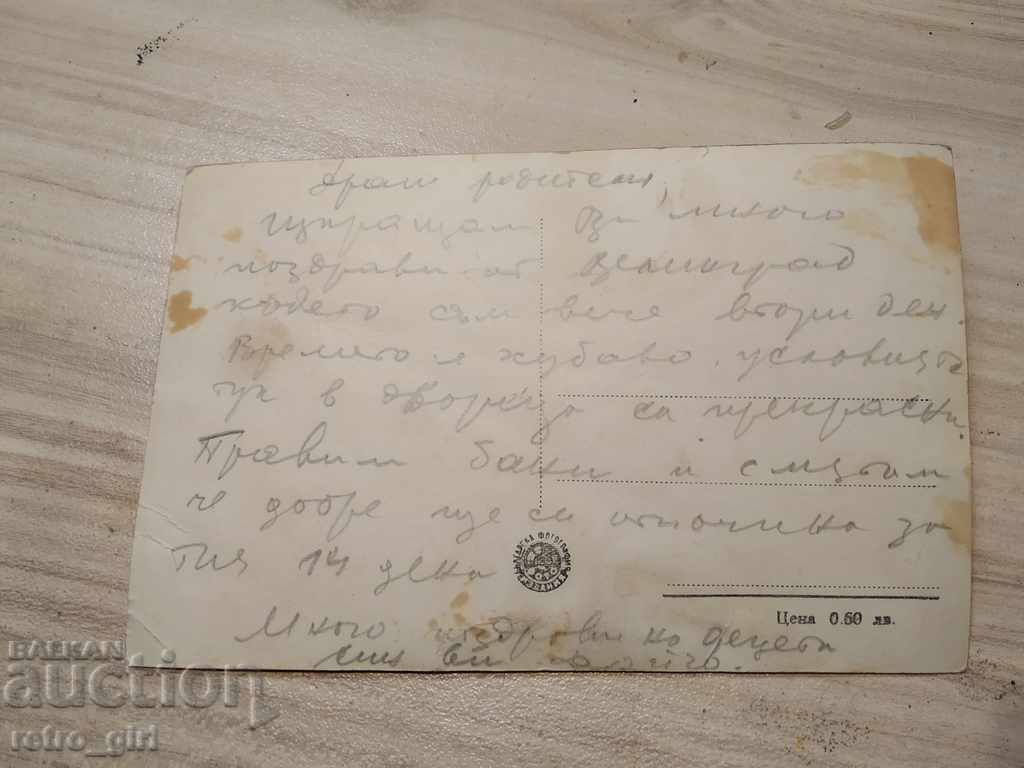 Драги родители,
Изпращам Ви много
поздрави от Велинград
където съм вече втори ден.
Времето е хубаво, условията
тук в двореца са прекрасни.
Правим бани и смятам
че добре ще си отпочина за
тия 14 дена
Много поздрави на децата
син Ви
Цена 0.60 лв.
BALKAN
auction
retro_girl